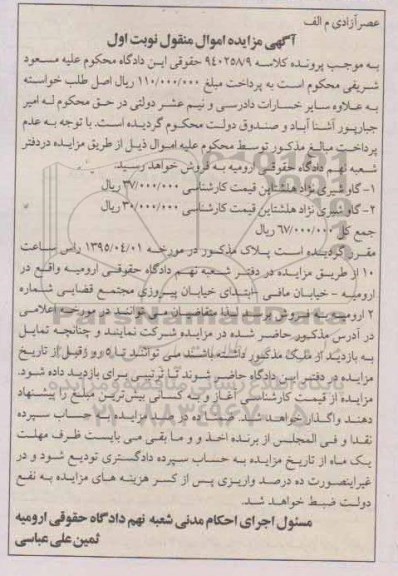 عصر آزادی م الف
آگهی مزایده اموال منقول نوبت اول
به موجب پرونده کلاسه ۹۴۰۲۵۸/۹ حقوقی این دادگاه محکوم علیه مسعود
شریفی محکوم است به پرداخت مبلغ ۱۱۰/۰۰۰/۰۰۰ ریال اصل طلب خواسته
به علاوه سایر خسارات دادرسی و نیم عشر دولتی در حق محکوم له امیر
جبارپور آشنا آباد و صندوق دولت محکوم گردیده است. با توجه به عدم
پرداخت مبالغ مذکور توسط محکوم علیه اموال ذیل از طریق مزایده دردفتر
شعبه نهم دادگاه حقوقی ارومیه به فروش خواهد رسید.
۱- گاو شیری نژاد هلشتاین قیمت کارشناسی ۳۷/۰۰۰/۰۰۰ ریال
۲- گاو شیری نژاد هلشتاین قیمت کارشناسی ۳۰/۰۰۰/۰۰۰ ریال
جمع کل ۶۷/۰۰۰/۰۰۰ ریال
مقرر گردیده است پلاک مذکور در مورخه ۱۳۹۵/۰۴/۰۱ راس ساعت
۱۰ از طریق مزایده در دفتر شعبه نهم دادگاه حقوقی ارومیه واقع در
ارومیه - خیابان مافی - ابتدای خیابان پیروزی مجتمع قضایی شماره
۲ ارومیه به فروش برسد. لذا متقاضیان می توانند در مورخه اعلامی
در آدرس مذکور حاضر شده در مزایده شرکت نمایند و چنانچه تمایل
به بازدید از ملک مذکور داشته باشند می توانند تا ۵ روز قبل از تاریخ
مزایده در دفتر این دادگاه حاضر شوند تا ترتیبی برای بازدید داده شود.
مزایده از قیمت کارشناسی آغاز و به کسانی بیش ترین مبلغ را پیشنهاد
دهند واگذار خواهد شد. ضمنا ده درصد مزایده به حساب سپرده
نقدا و فی المجلس از برنده اخذ و و ما بقی می بایست ظرف مهلت
یک ماه از تاریخ مزایده به حساب سپرده دادگستری تودیع شود و در
غیراینصورت ده درصد واریزی پس از کسر هزینه های مزایده به نفع
دولت ضبط خواهد شد.
مسئول اجرای احکام مدنی شعبه نهم دادگاه حقوقی ارومیه
ثمین علی عباسی
ParsNamadData
پایگاه اطلاع رسانی مناقصه و مزایده
۰۲۱-۸۸۳۴۹۶۷۰-۵